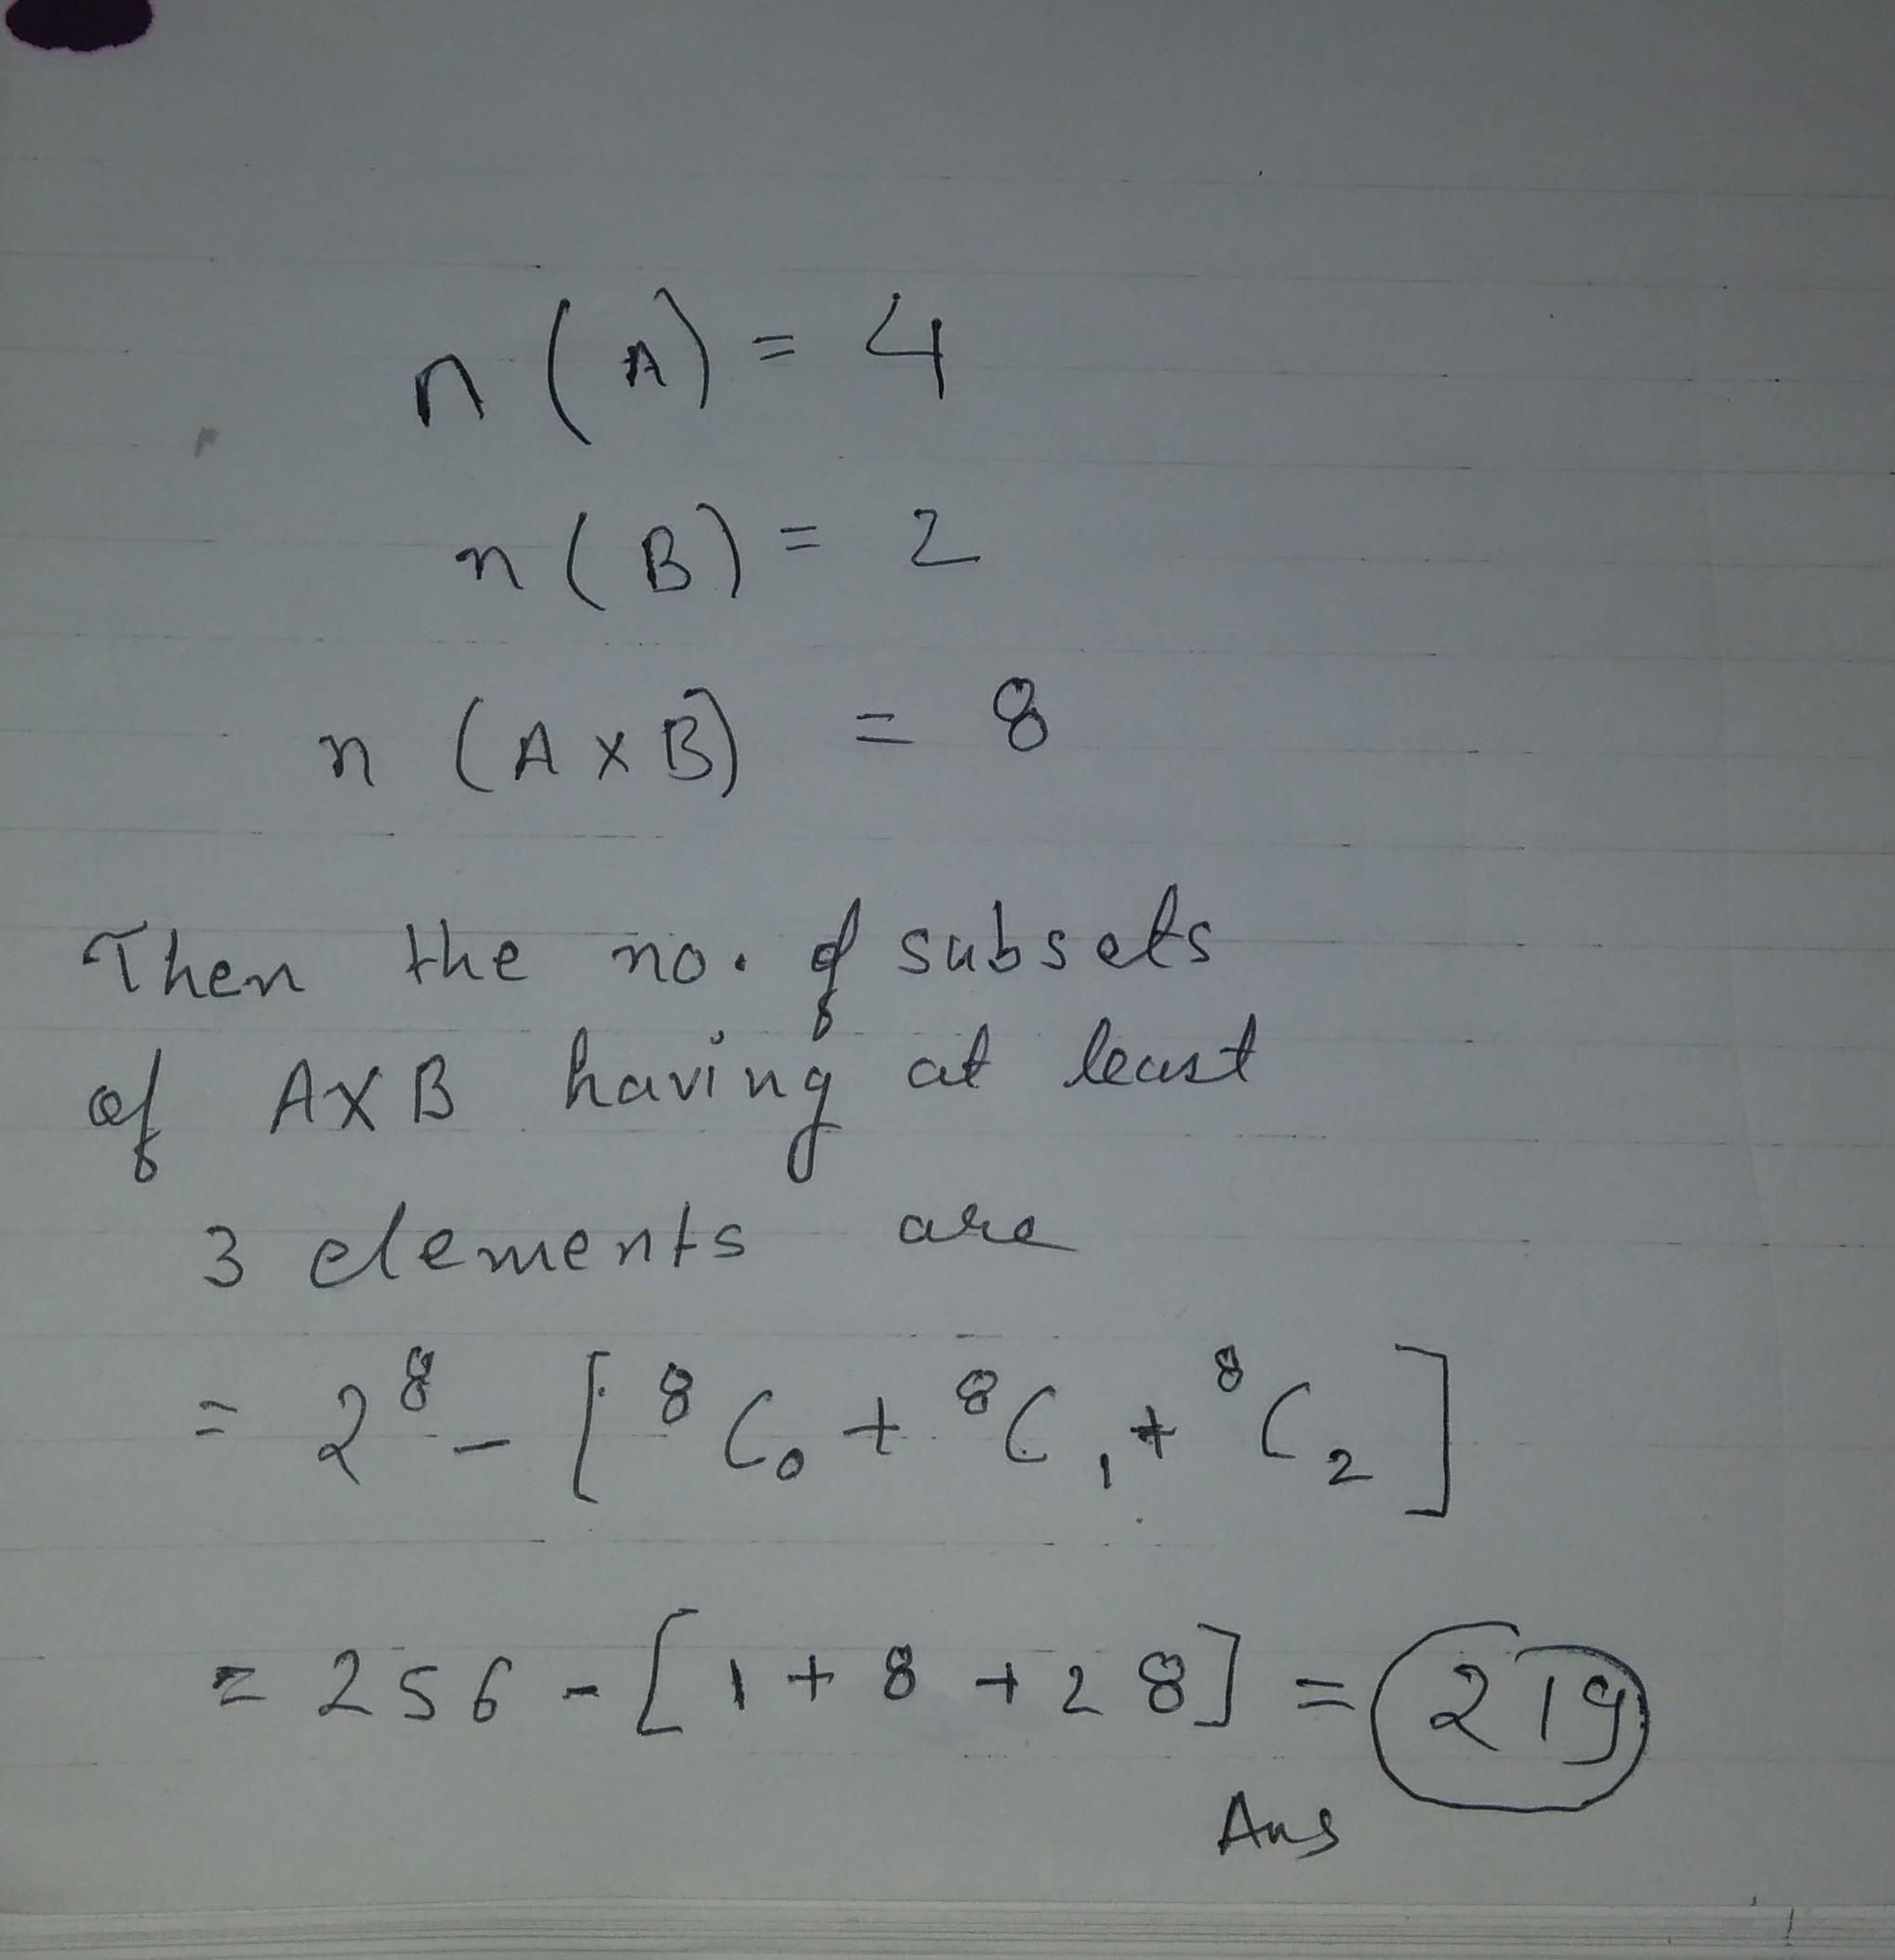 n (A) = 4
n (B) = 2
n (A × B) = 8
Then the no. of subsets
of A×B having at least
3 elements are
= 2⁸ - [ ⁸C₀ + ⁸C₁ + ⁸C₂ ]
= 256 - [1 + 8 + 28] = 219
Ans